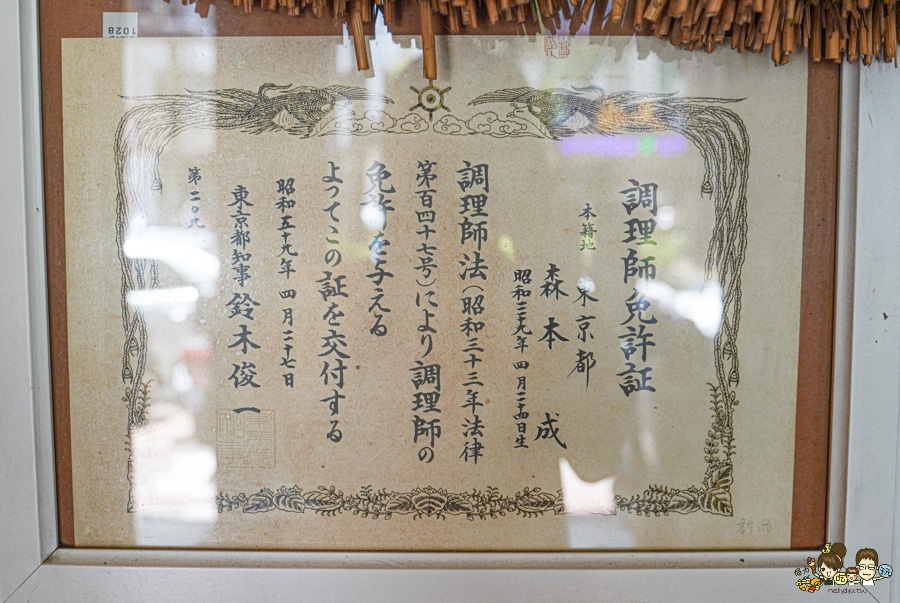 調理師免許証
本籍地 東京都
森本 成
昭和二十九年四月二十四日生
調理師法(昭和三十三年法律
第百四十七号)により調理師の
免許を与える
よってこの証を交付する
昭和五十九年四月二十七日
東京都知事 鈴木俊一
第二〇九
1028
nellydyu.tw